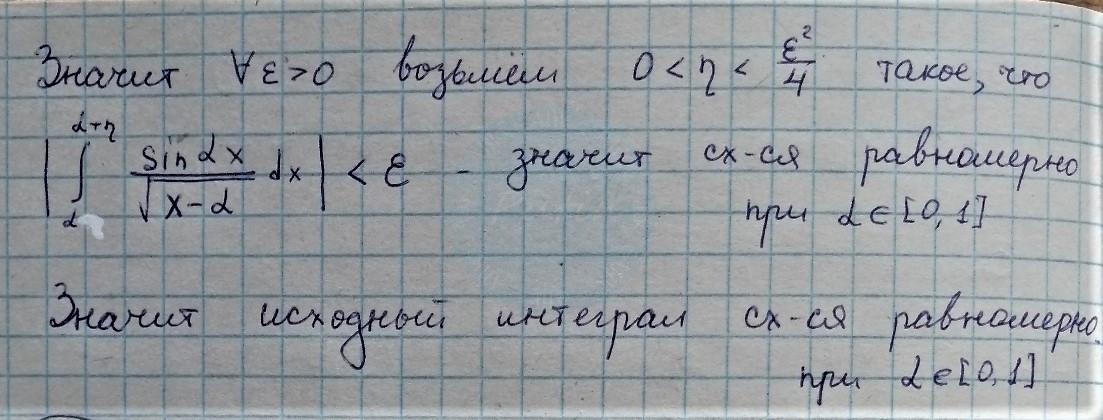 Значит ∀ε>0 возьмём 0<η<ε²/4 такое, что
|∫_α^{α+η} sin αx/√(x-α) dx| < ε - значит сх-ся равномерно
при α∈[0,1]
Значит исходный интеграл сх-ся равномерно.
при α∈[0,1]